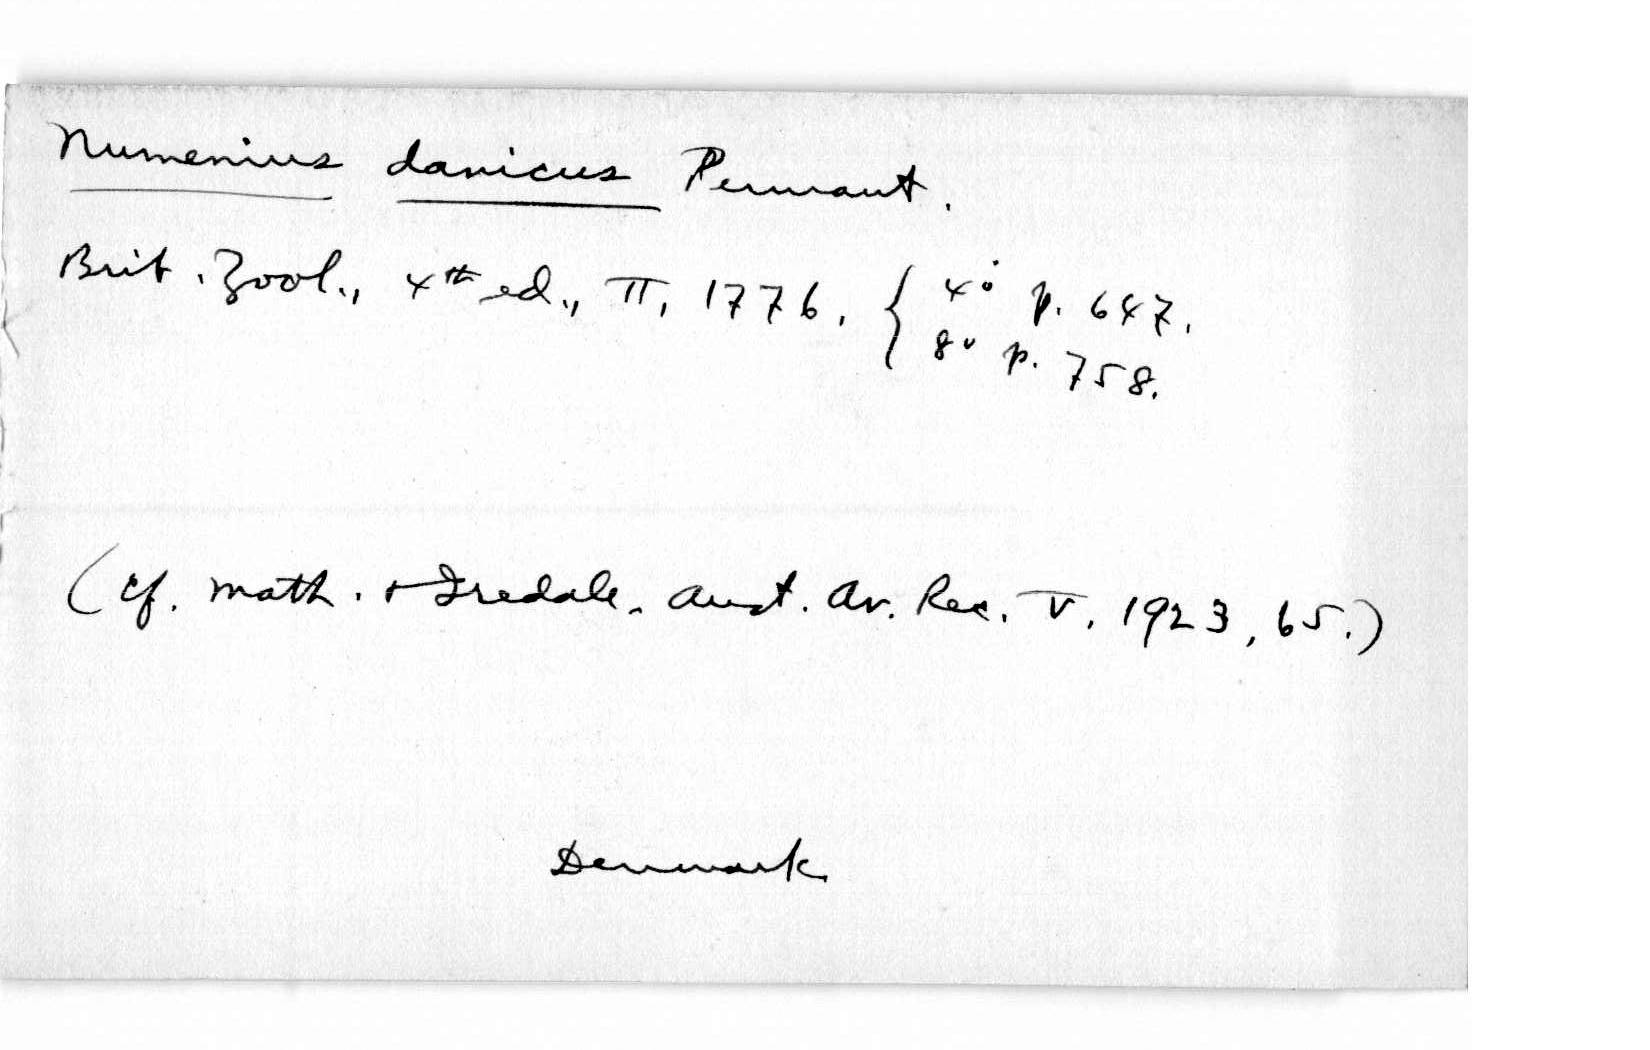 Numenius danicus Pennant.
Brit. Zool., 4th ed., II, 1776, { 4° p. 647.
8° p. 758.
(cf. Math. & Iredale. Aust. Av. Rec. V, 1923, 65.)
Denmark